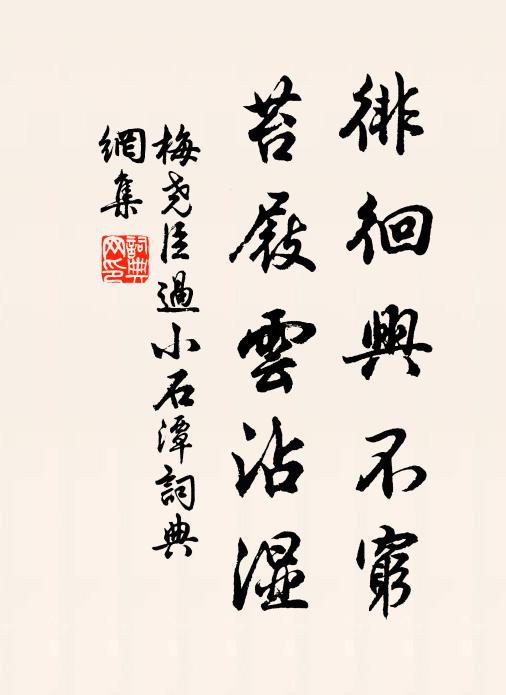 徘徊興不窮
苔屐雲沾濕
梅尧臣過小石潭詞典
網集
詞典
网印